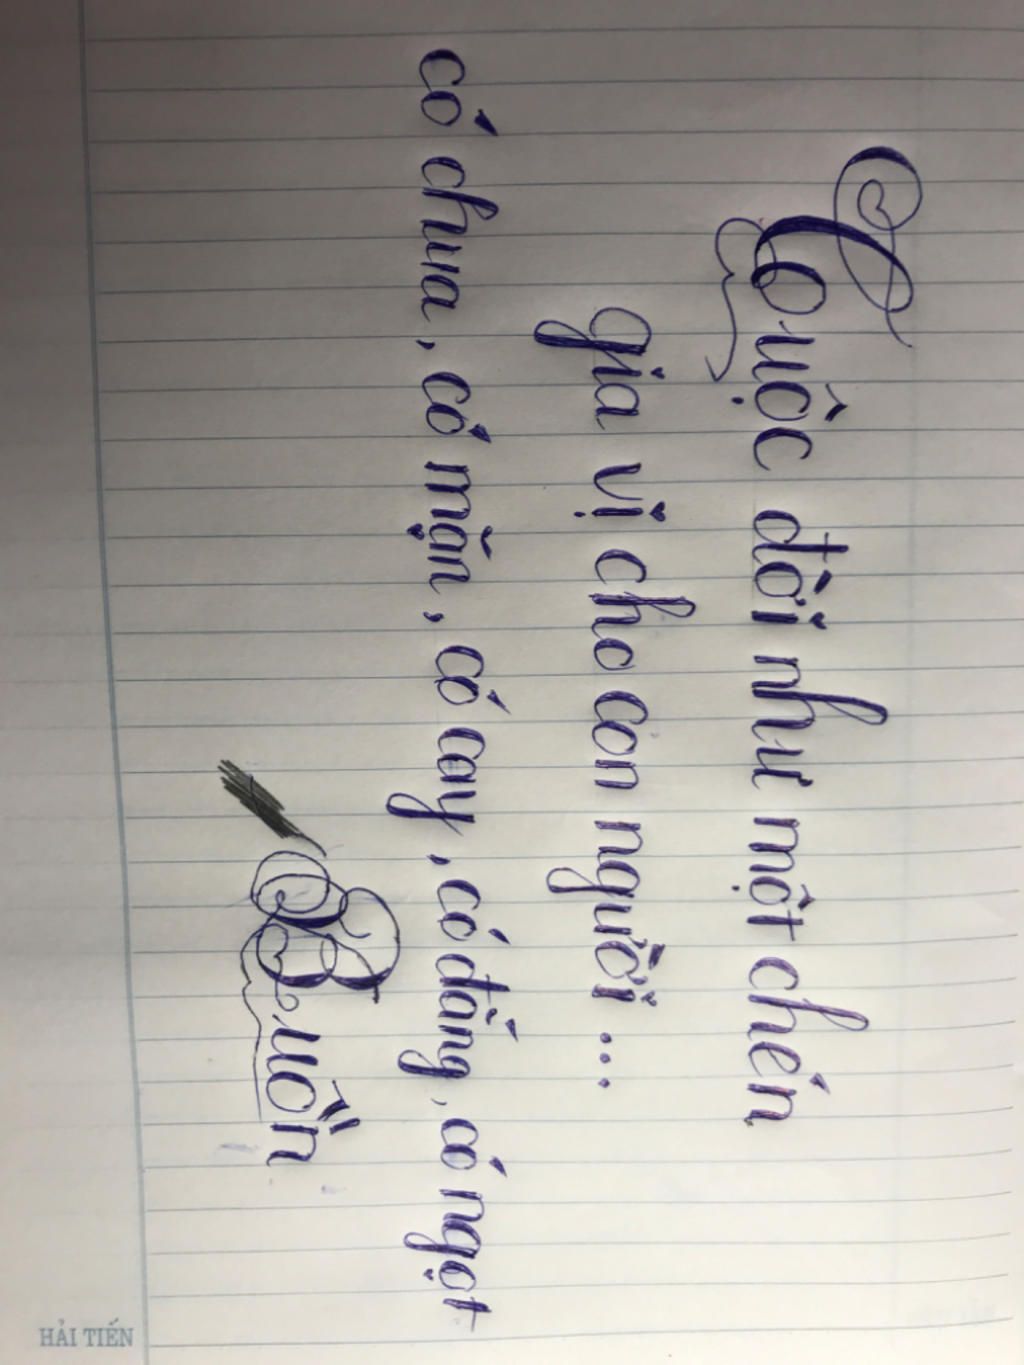 Cuộc đời như một chén
gia vị cho con người...
có chua, có mặn, có cay, có đắng, có ngọt
Buồn
HẢI TIẾN